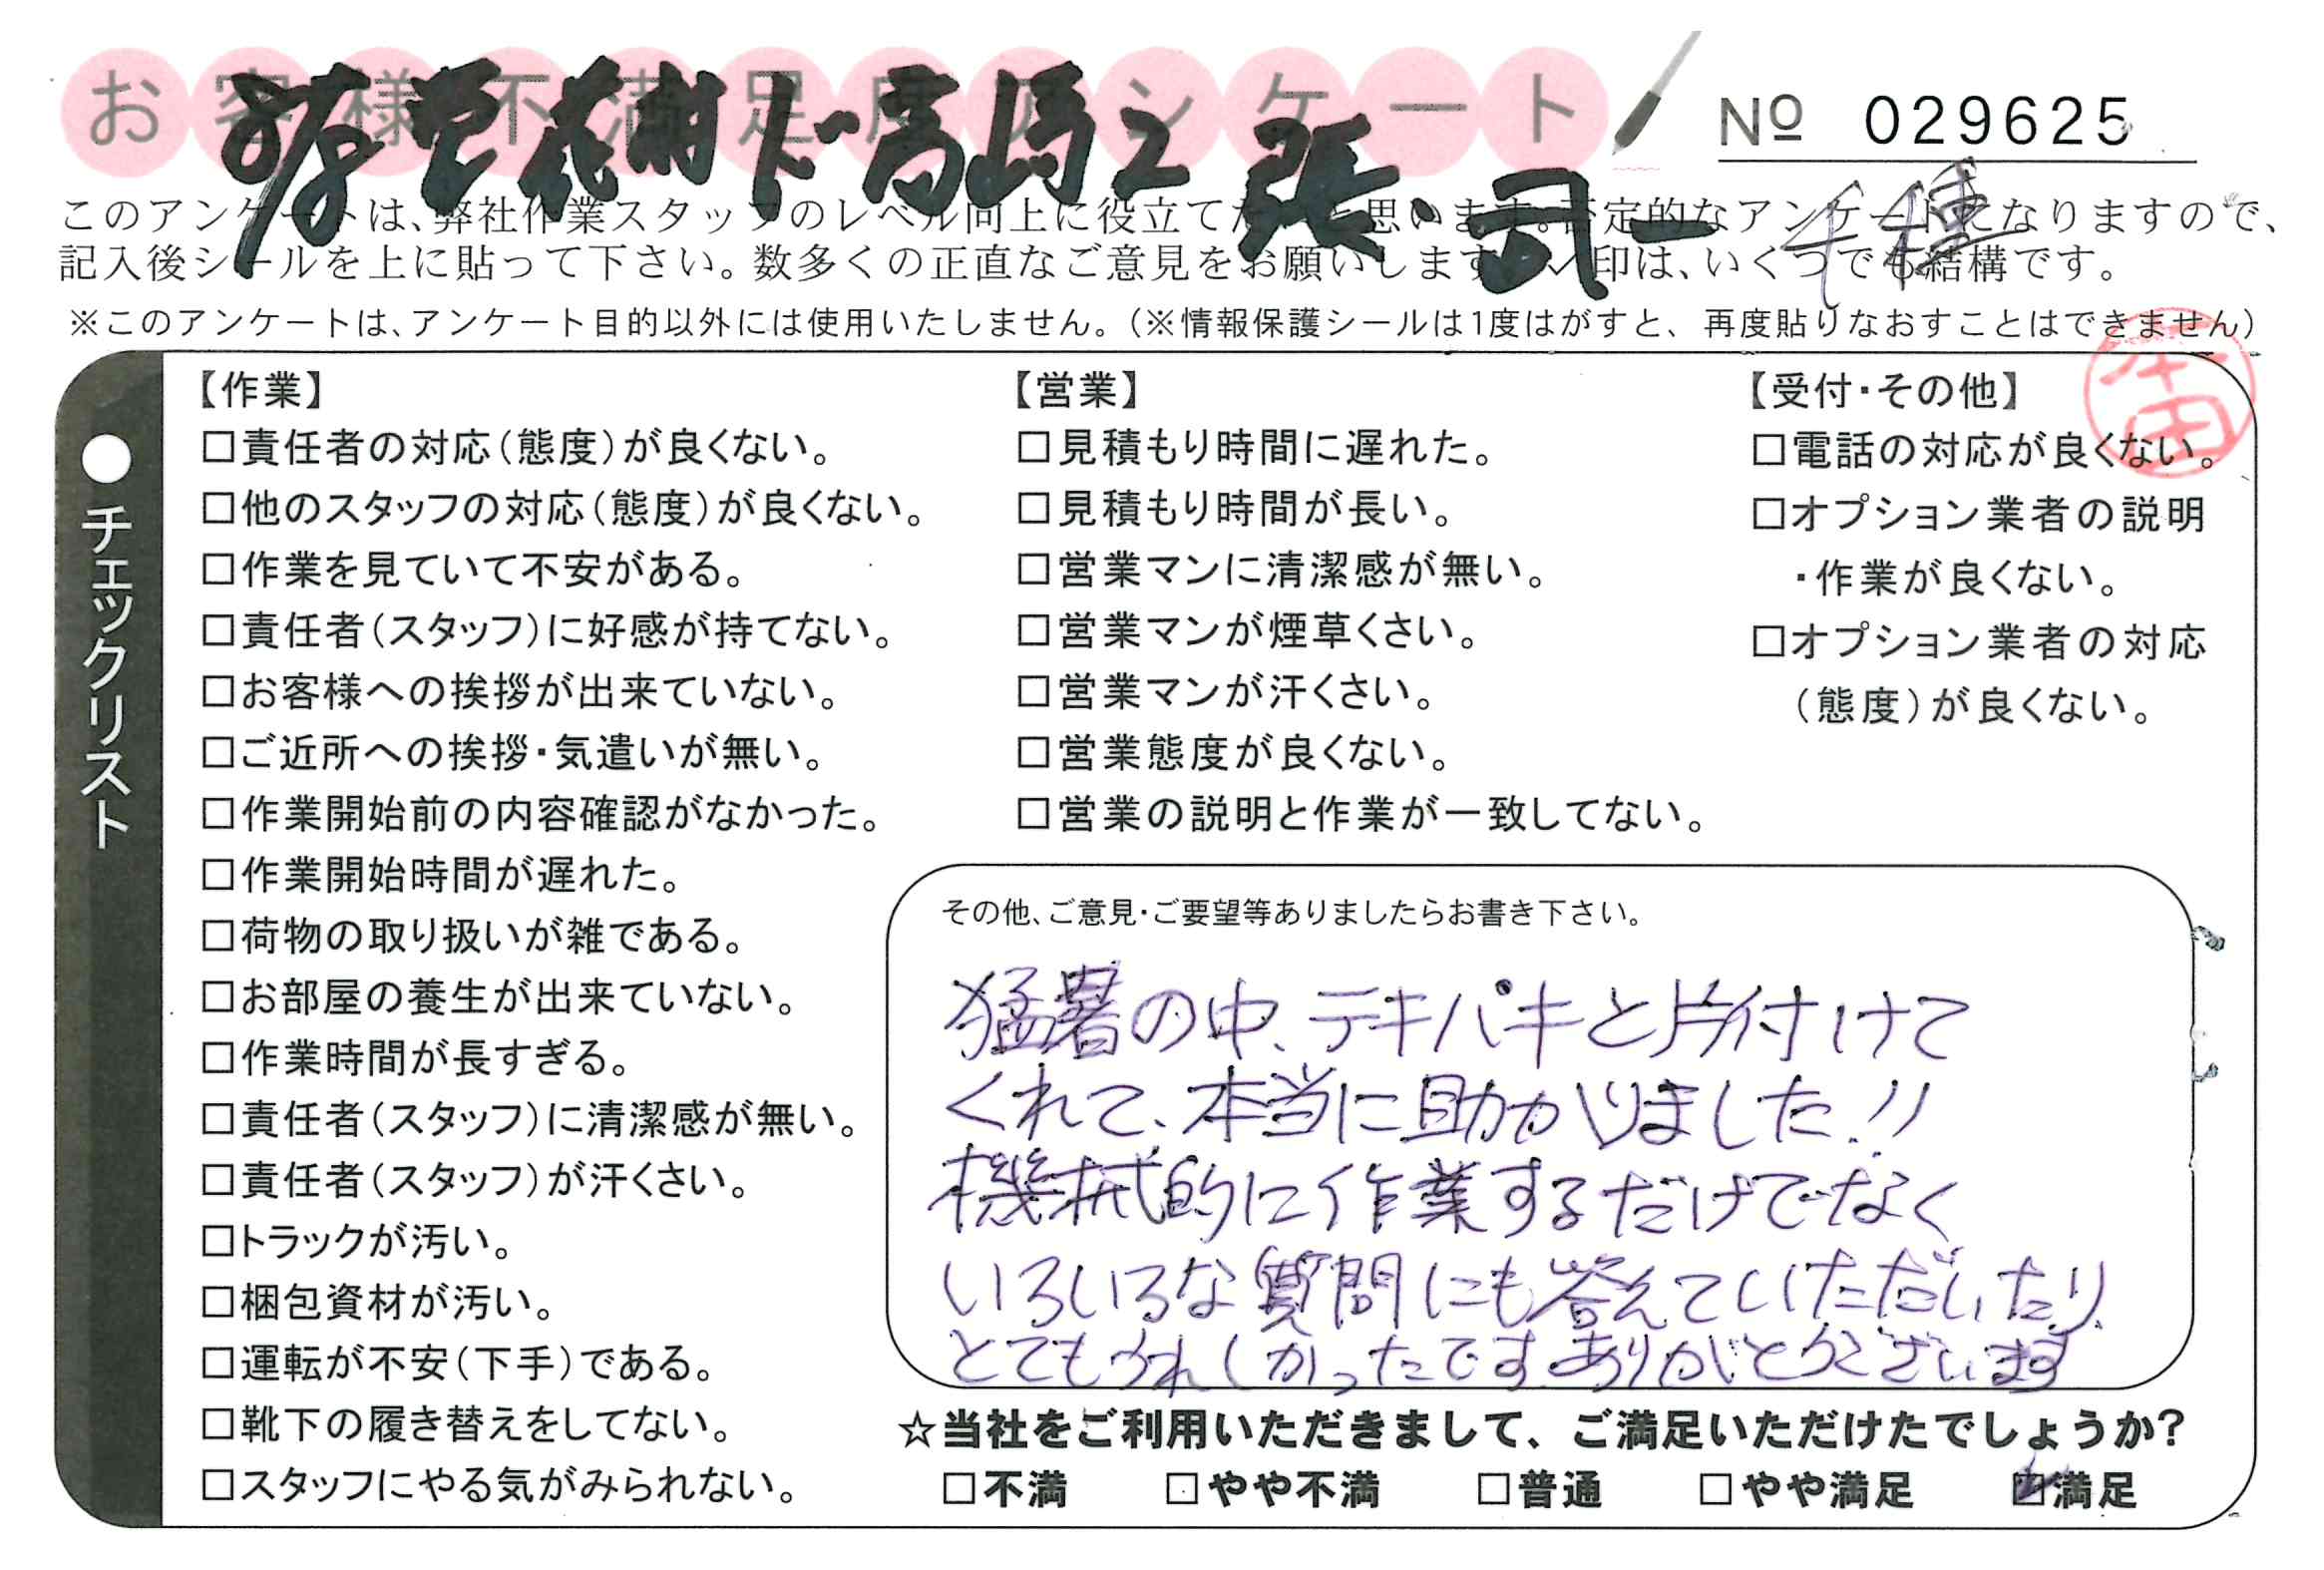 お客様不満足度アンケート
№ 029625
8/8
千種
このアンケートは、弊社作業スタッフのレベル向上に役立てたいと思います。否定的なアンケートになりますので、
記入後シールを上に貼って下さい。数多くの正直なご意見をお願いします。✓印は、いくつでも結構です。
※このアンケートは、アンケート目的以外には使用いたしません。（※情報保護シールは1度はがすと、再度貼りなおすことはできません）
●チェックリスト
【作業】
□責任者の対応（態度）が良くない。
□他のスタッフの対応（態度）が良くない。
□作業を見ていて不安がある。
□責任者（スタッフ）に好感が持てない。
□お客様への挨拶が出来ていない。
□ご近所への挨拶・気遣いが無い。
□作業開始前の内容確認がなかった。
□作業開始時間が遅れた。
□荷物の取り扱いが雑である。
□お部屋の養生が出来ていない。
□作業時間が長すぎる。
□責任者（スタッフ）に清潔感が無い。
□責任者（スタッフ）が汗くさい。
□トラックが汚い。
□梱包資材が汚い。
□運転が不安（下手）である。
□靴下の履き替えをしてない。
□スタッフにやる気がみられない。
【営業】
□見積もり時間に遅れた。
□見積もり時間が長い。
□営業マンに清潔感が無い。
□営業マンが煙草くさい。
□営業マンが汗くさい。
□営業態度が良くない。
□営業の説明と作業が一致してない。
【受付・その他】
□電話の対応が良くない。
□オプション業者の説明
・作業が良くない。
□オプション業者の対応
（態度）が良くない。
その他、ご意見・ご要望等ありましたらお書き下さい。
猛暑の中、テキパキと片付けて
くれて、本当に助かりました!!
機械的に作業するだけでなく
いろいろな質問にも答えていただいたり
とてもうれしかったです。ありがとうございます
☆当社をご利用いただきまして、ご満足いただけたでしょうか?
□不満 □やや不満 □普通 □やや満足 ☑満足